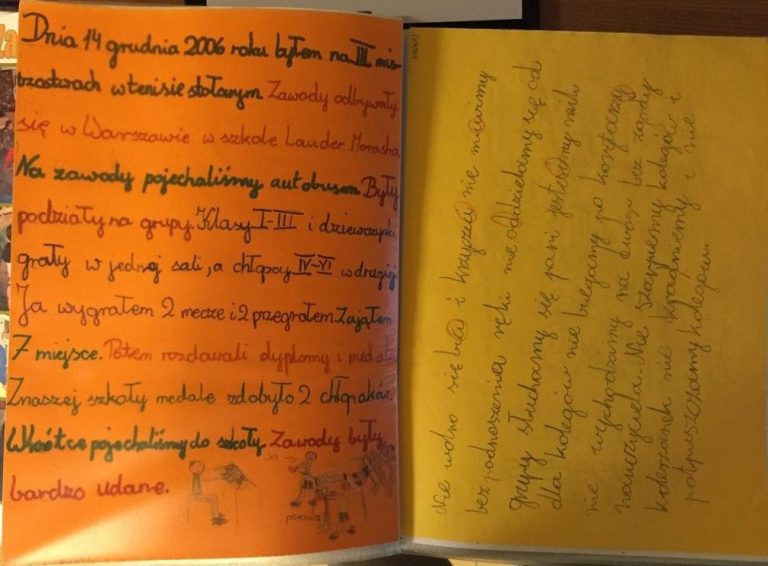 Dnia 14 grudnia 2006 roku byłem na III mis-
trzostwach w tenisie stołowym Zawody odbywały
się w Warszawie w szkole Lauder Morasha
Na zawody pojechaliśmy autobusem Były
podziały na grupy. Klasy I-III i dziewczynki
grały w jednej sali, a chłopcy IV-VI w drugiej
Ja wygrałem 2 mecze i 2 przegrałem Zająłem
7 miejsce. Potem rozdawali dyplomy i medale
Z naszej szkoły medale zdobyło 2 chłopaków.
Wkrótce pojechaliśmy do szkoły Zawody były
bardzo udane.
Nie wolno się bić i krzyczeć nie mówimy
bez podnoszenia ręki nie oddzielamy się od
grupy słuchamy się pani jesteśmy mili
dla kolegów nie biegamy po korytarzu
nie wychodzimy na dwór bez zgody
nauczyciela. Nie szarpiemy kolegów i
koleżanek nie kradniemy i nie
potpuszczamy kolegów.